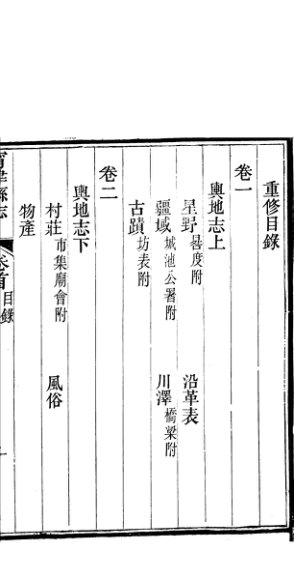 重修目錄
卷一
輿地志上
星野晷度附 沿革表
疆域城池公署附 川澤橋梁附
古蹟坊表附
卷二
輿地志下
村莊市集廟會附 風俗
物產
縣志 卷首 目錄 一